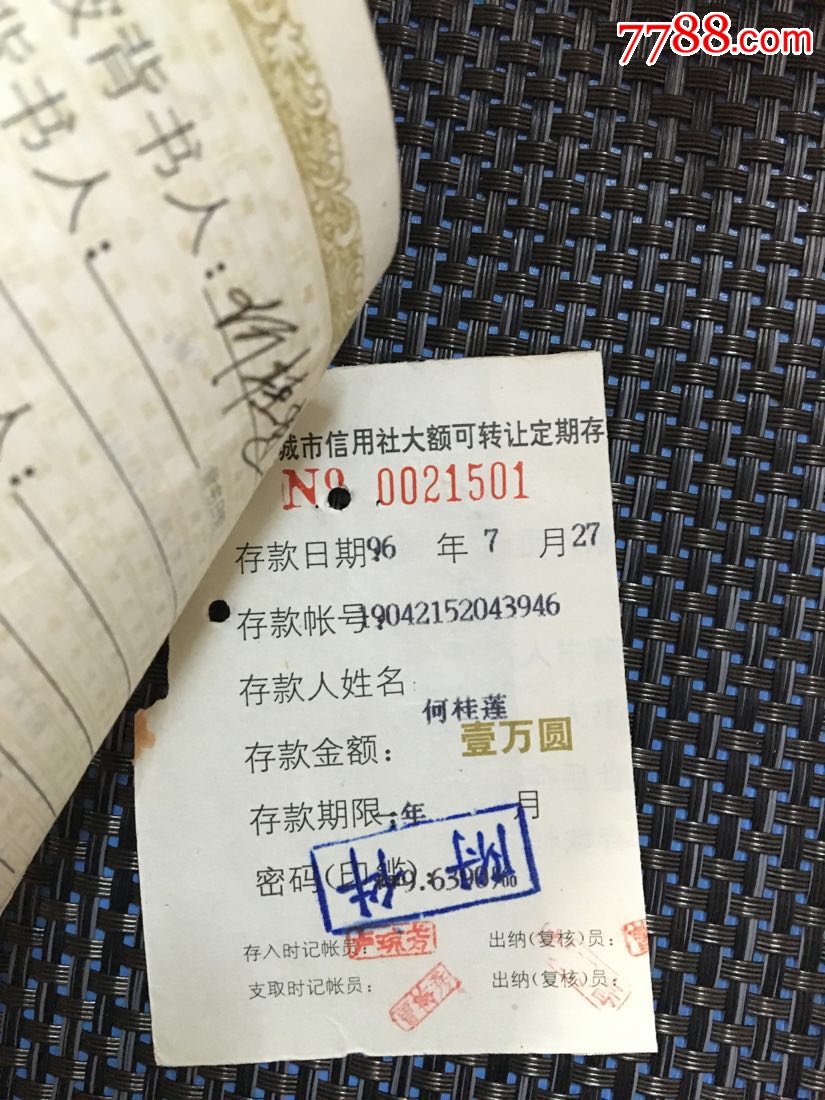 7788.com
背书人：
书人：
人：
城市信用社大额可转让定期存
№ 0021501
存款日期:96 年 7 月27
存款帐号:19042152043946
存款人姓名
何桂莲
存款金额： 壹万圆
存款期限:一年 月
密码(印鉴): 9.6390‰
附件
存入时记帐员： 出纳(复核)员：
支取时记帐员： 出纳(复核)员：